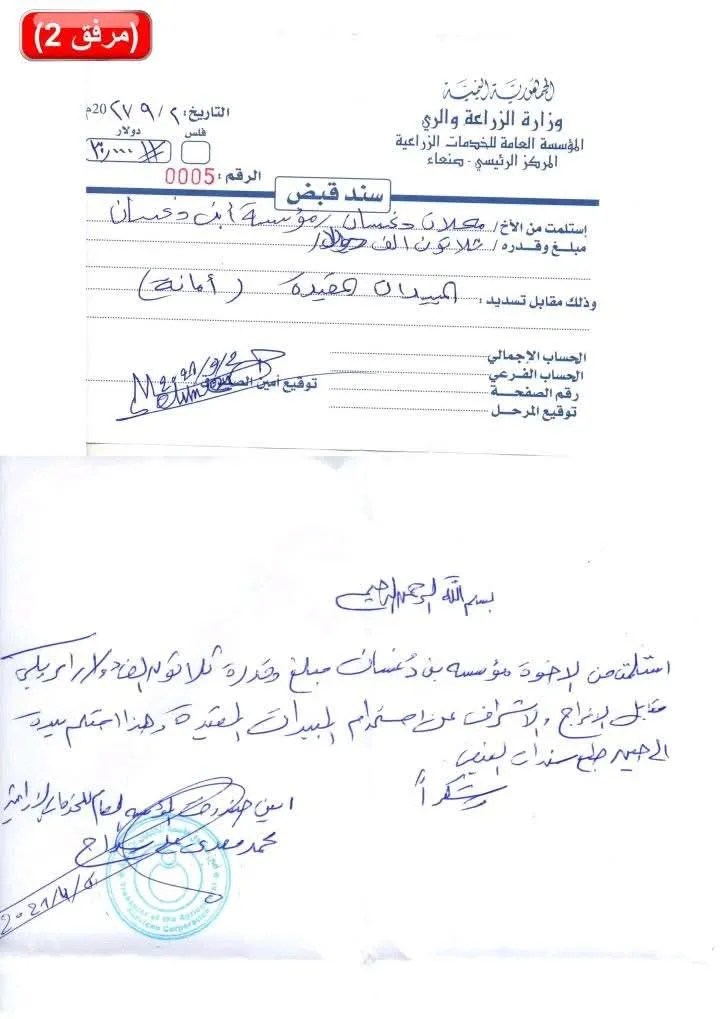 (مرفق 2)
الجمهورية اليمنية
وزارة الزراعة والري
المؤسسة العامة للخدمات الزراعية
المركز الرئيسي - صنعاء
التاريخ: ٢ / ٩ / 20م
فلس دولار
الرقم: 0005
سند قبض
إستلمت من الأخ / محلات دغسان / مؤسسة أبن دغسان
مبلغ وقدره / ثلاثون الف دولار /
وذلك مقابل تسديد : المبيدات المقيدة (أمانة)
الحساب الإجمالي
الحساب الفرعي
رقم الصفحة
توقيع المرحل
توقيع أمين الصندوق
بسم الله الرحمن الرحيم
استلمت من الاخوة مؤسسه بن دغسان مبلغ وقدرة ثلاثون الف دولار امريكي
مقابل الافراج والاشراف عن استخدام المبيدات المقيدة وهذا استلام بيدة
الى حين طبع سندات القبض
وشكراً
امين صندوق المؤسسه العامه للخدمات الزراعية
محمد مهدي علي
Services Corporation